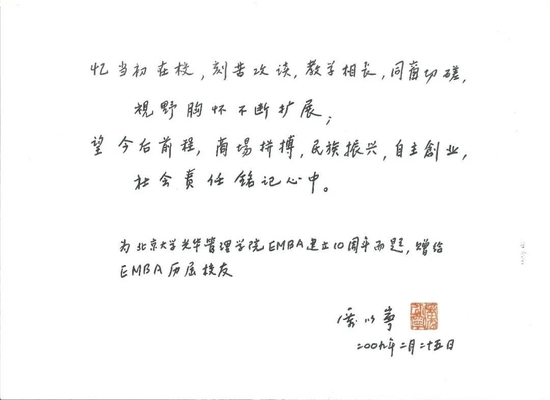 忆当初在校，刻苦攻读，教学相长，同窗切磋，
视野胸怀不断扩展；
望今后前程，商場拼搏，民族振兴，自主創业，
社会责任铭记心中。
为北京大学光华管理学院EMBA建立10周年而题，赠给
EMBA历届校友
厉以宁
二00九年二月二十五日